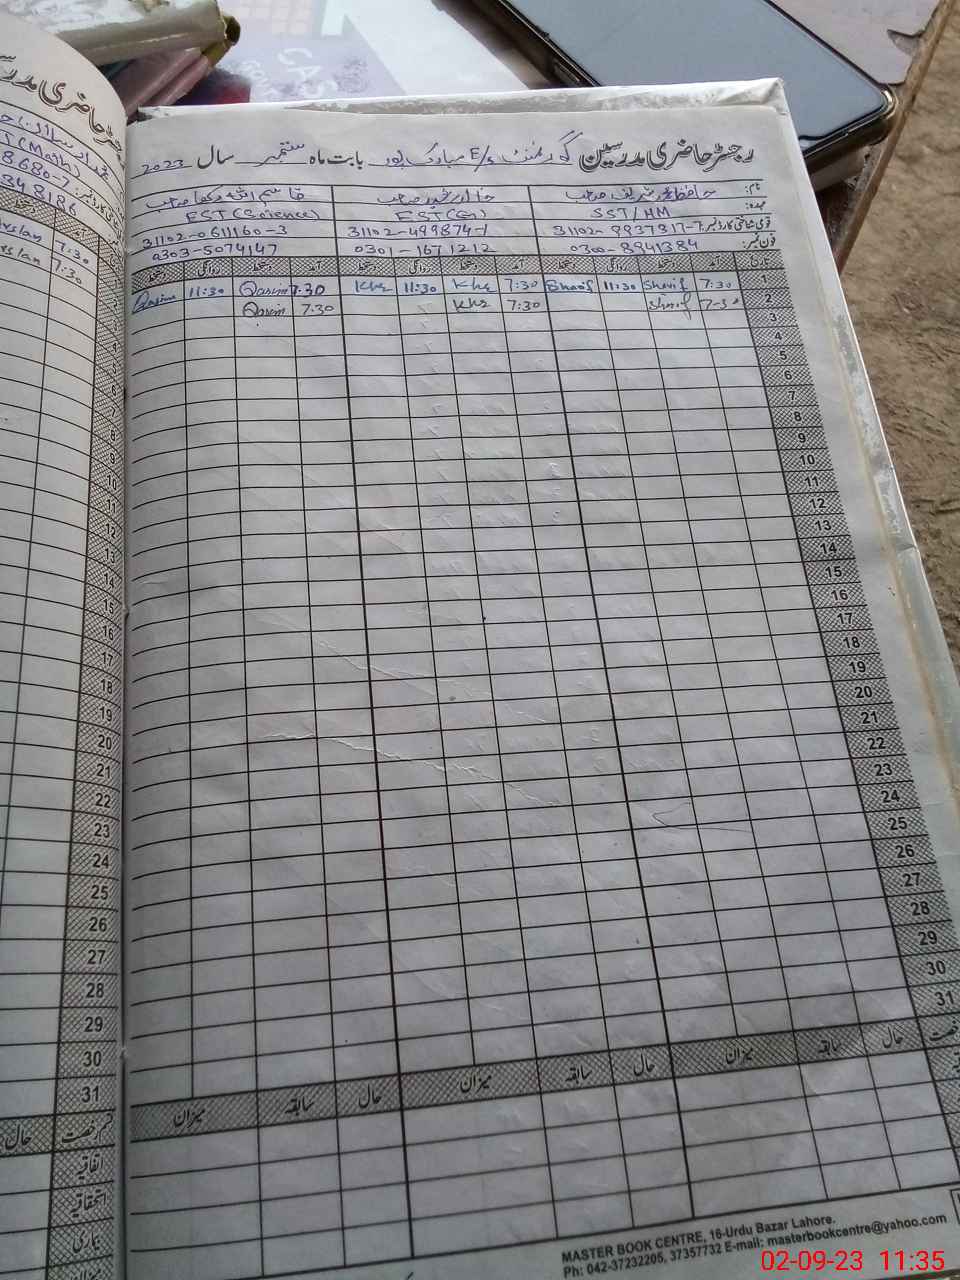 رجسٹر حاضری مدرسین گورنمنٹ E/s مبارک پور بابت ماہ ستمبر سال 2023
نام: حافظ محمد شریف صاحب خالد رشید صاحب قاسم اللہ رکھا صاحب
عہدہ: SST/HM EST(G) EST(Science)
قومی شناختی کارڈ نمبر: 31102-9937317-7 31102-4998741-1 31102-0611160-3
فون نمبر: 0300-8941384 0301-1671212 0303-5074147
تاریخ آمد دستخط روانگی دستخط آمد دستخط روانگی دستخط آمد دستخط روانگی دستخط
1 7:30 Sharif 11:30 Sharif 7:30 Khr 11:30 Khr 7:30 Qasim 11:30 Qasim
2 7-30 Sharif 7:30 Khr 7:30 Qasim
3
4
5
6
7
8
9
10
11
12
13
14
15
16
17
18
19
20
21
22
23
24
25
26
27
28
29
30
31
حال سابقہ میزان حال سابقہ میزان حال سابقہ میزان
MASTER BOOK CENTRE, 16-Urdu Bazar Lahore.
Ph: 042-37232205, 37357732 E-mail: masterbookcentre@yahoo.com
رجسٹر حاضری مدرسین
(Math)
8680-7
348186
7:30 slan
7:30 slan
4
5
6
7
8
9
10
11
12
13
14
15
16
17
18
19
20
21
22
23
24
25
26
27
28
29
30
31
قسم رخصت حال
اتفاقیہ
استحقاقیہ
بیماری
02-09-23 11:35